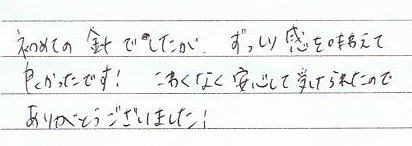 初めての針でしたが、ずっしり感を味えて
良かったです! こわくなく安心して受けられたので
ありがとうございました!